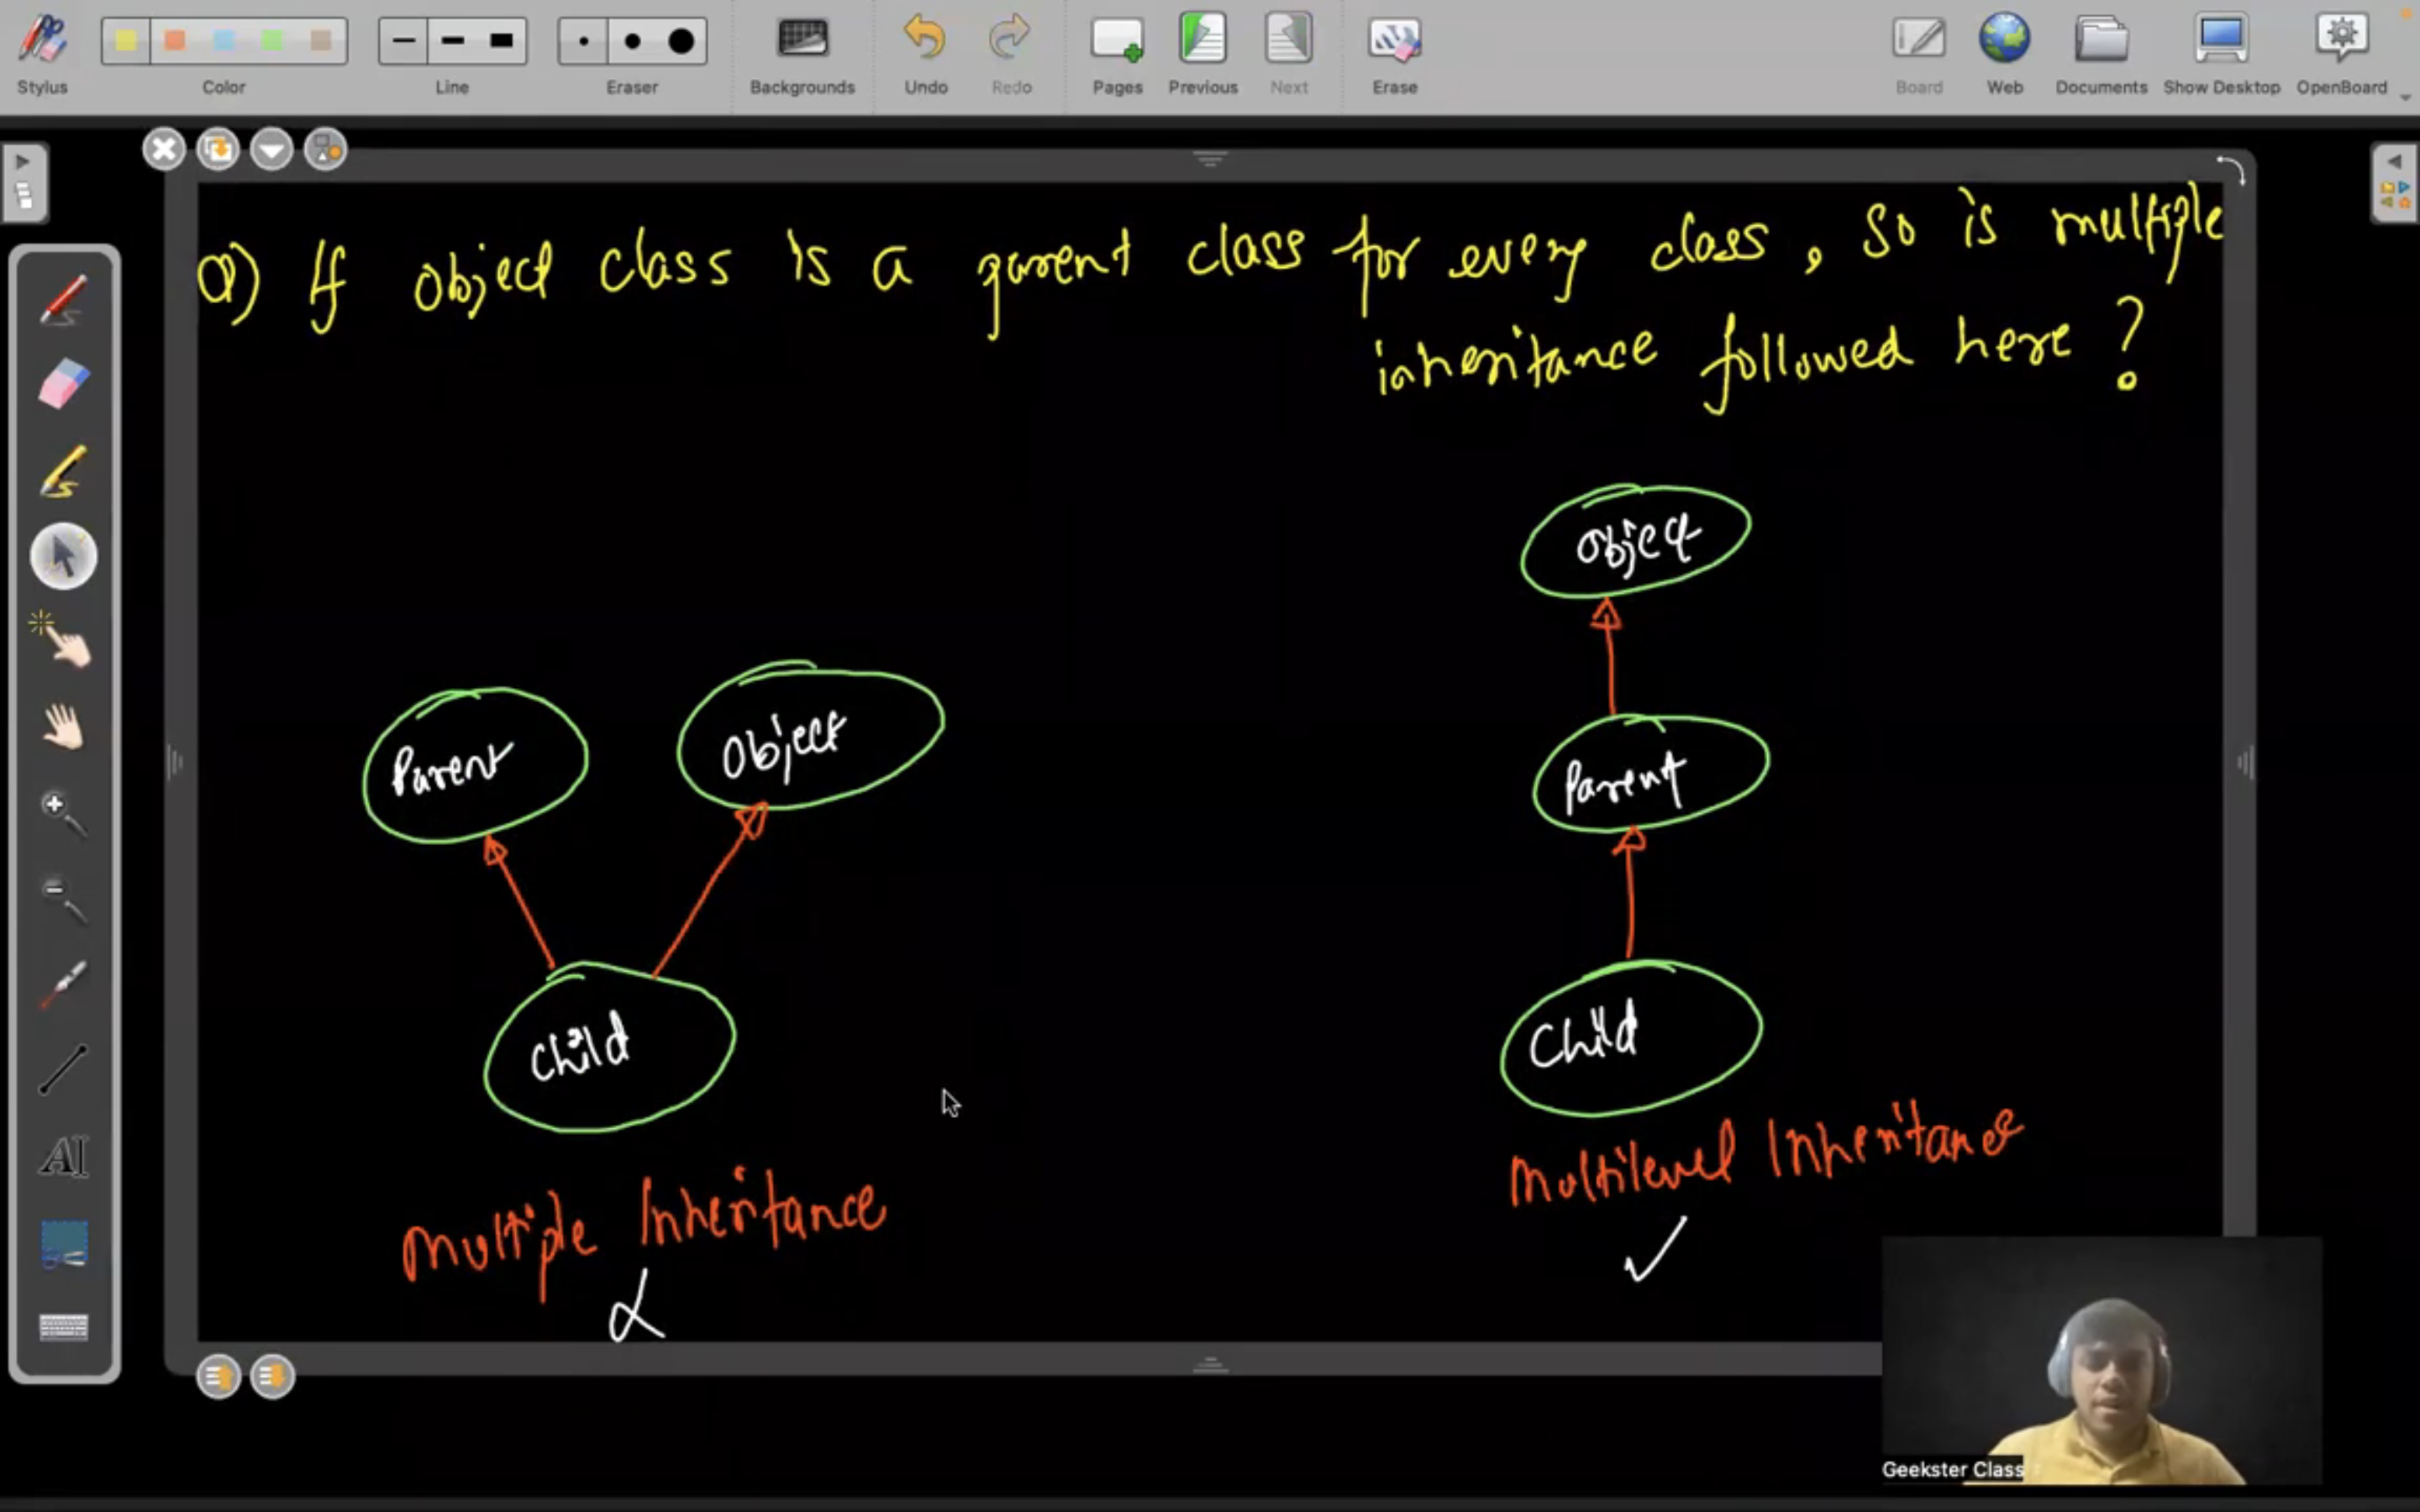 Stylus
Color
Line
Eraser
Backgrounds
Undo
Redo
Pages
Previous
Next
Erase
Board
Web
Documents
Show Desktop
OpenBoard
Q) If object class is a parent class for every class, so is multiple
inheritance followed here?
Object
Parent
Object
Parent
Child
Child
Multiple Inheritance
Multilevel Inheritance
AI
Geekster Class